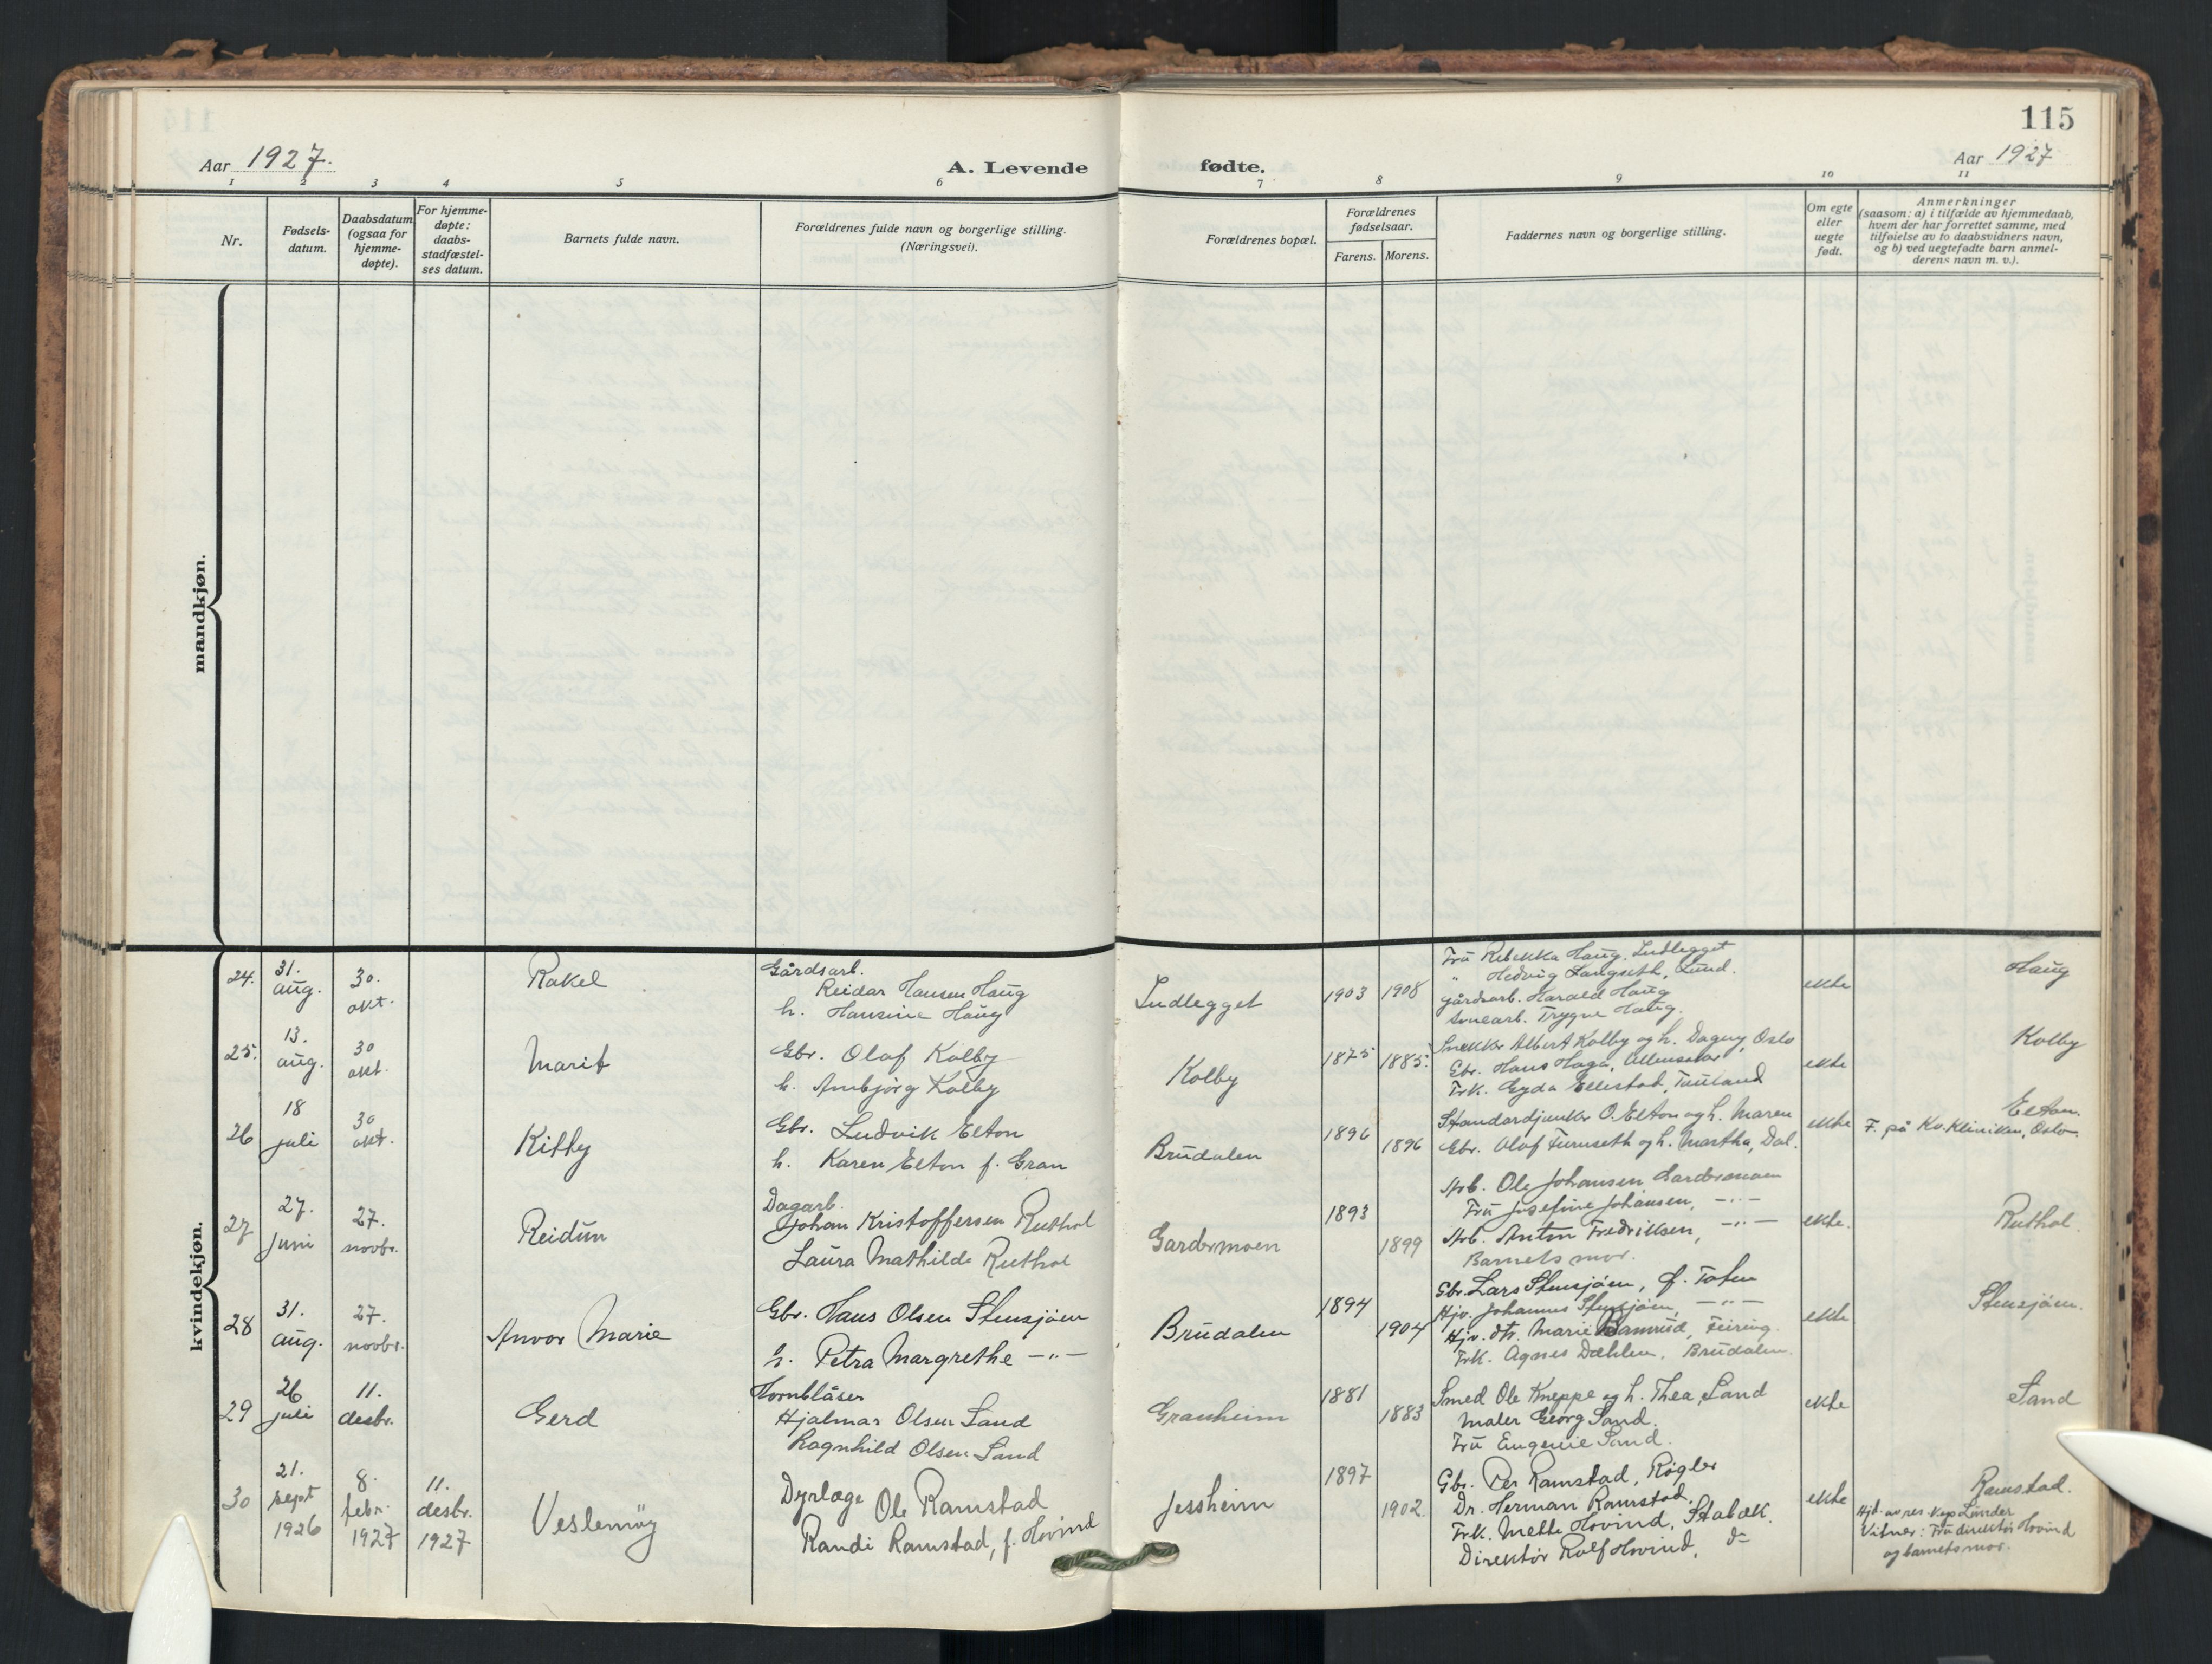 115
Aar 1927.
A. Levende
fødte.
Aar 1927
1 2 3 4 5 6 7 8 9 10 11
Nr.
Fødsels-
datum.
Daabsdatum
(ogsaa for
hjemme-
døpte).
For hjemme-
døpte:
daabs-
stadfæstel-
ses datum.
Barnets fulde navn.
Forældrenes fulde navn og borgerlige stilling.
(Næringsvei).
Forældrenes bopæl.
Forældrenes
fødselsaar.
Farens. Morens.
Faddernes navn og borgerlige stilling.
Om egte
eller
uegte
født.
Anmerkninger
(saasom: a) i tilfælde av hjemmedaab,
hvem der har forrettet samme, med
tilføielse av to daabsvidners navn,
og b) ved uegtefødte barn anmel-
derens navn m. v.).
mandkjøn.
kvindekjøn.
24.
31.
aug.
30.
okt.
Rakel
Gårdsarb.
Reidar Hansen Haug
h. Hansine Haug
Ludlegget
1903 1908
Fru Rebekka Haug, Ludlegget
" Hedvig Langseth, Lund.
gårdsarb. Harald Haug
Trygve Haug.
ekte
Haug
25.
13.
aug.
30
okt.
Marit
Gbr. Olaf Kolby
h. Ambjørg Kolby
Kolby
1875 1885.
Snekker Albert Kolby og h. Dagny, Oslo
Gbr. Hans Haga, Ullensaker
Frk. Gyda Ellestad,
ekte
Kolby
26
18
juli
30
okt.
Kitty
Gbr. Ludvik Elton
h. Karen Elton f. Gran
Brudalen
1896
1896
Standardjunker O. Elton og h. Maren
Gbr. Olaf Furuseth og h. Martha, Dal.
ekte
Elton.
F. på Kv.kliniken, Oslo.
27
27.
juni
27.
novbr.
Reidun
Dagarb.
Johan Kristoffersen Ruthol
Laura Mathilde Ruthol
Gardermoen
1893
1899
Arb. Ole Johansen Gardermoen
Fru Josefine Johansen, -"-
Arb. Anton Fredriksen, -"-
Barnets mor.
ekte.
Ruthol.
28
31.
aug.
27.
novbr.
Anvor Marie
Gbr. Hans Olsen Stensjøen
h. Petra Margrethe -"-
Brudalen
1894
1904
Gbr. Lars Stensjøen, Ø. Toten
Hjv. Johannes Stensjøen, -"-
Hjv. dtr. Marie Bamrud, Feiring.
Frk. Agnes Dæhlen, Brudalen.
ekte
Stensjøen.
29
26
juli
11.
desbr.
Gerd
Hornblåser
Hjalmar Olsen Sand
Ragnhild Olsen Sand
Granheim
1881
1883
Smed Ole Kneppe og h. Thea, Sand
Maler Georg Sand.
Fru Eugenie Sand.
ekte
Sand
30
21.
sept
1926
8.
febr.
1927
11.
desbr.
1927
Veslemøy
Dyrlæge Ole Ramstad
Randi Ramstad, f. Hovind
Jessheim
1897
1902.
Gbr. Per Ramstad, Røgler
Dr. Herman Ramstad.
Frk. Mette Hovind, Stabæk.
Direktør Rolf Hovind, do
ekte
Ramstad.
Hjd. av res. kap Lunder
Vitner: Fru direktør Hovind
og barnets mor.